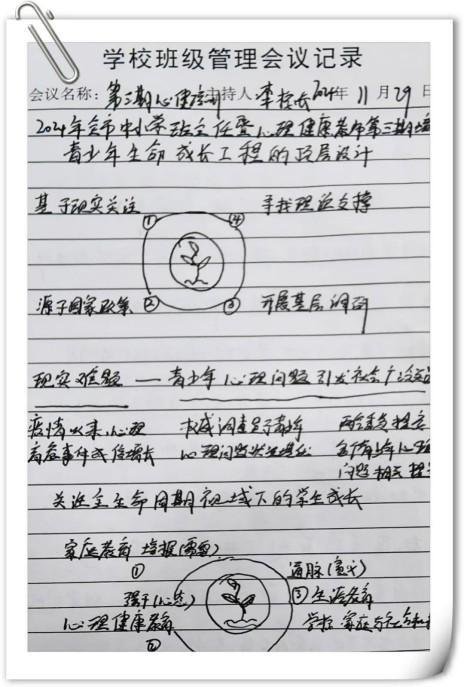 学校班级管理会议记录
会议名称：第三期心健培训 主持人：李校长 2024年 11月29日
2024年全市中小学班主任暨心理健康教师第三期培
青少年生命成长工程的顶层设计
基于现实关注 ① ④ 寻找理论支撑
源于国家政策 ② ③ 开展基层调研
现实难题 — 青少年心理问题引发社会广泛关
疫情以来，心理 权威调查显示青少年 两会委员提案
危急事件成倍增长 心理问题
问题相关提
关注全生命周期视域下的学生成长
家庭教育 培根
① 通脉
强干(心态) ③生涯教育
心理健康教育 学校 家庭与社会
②